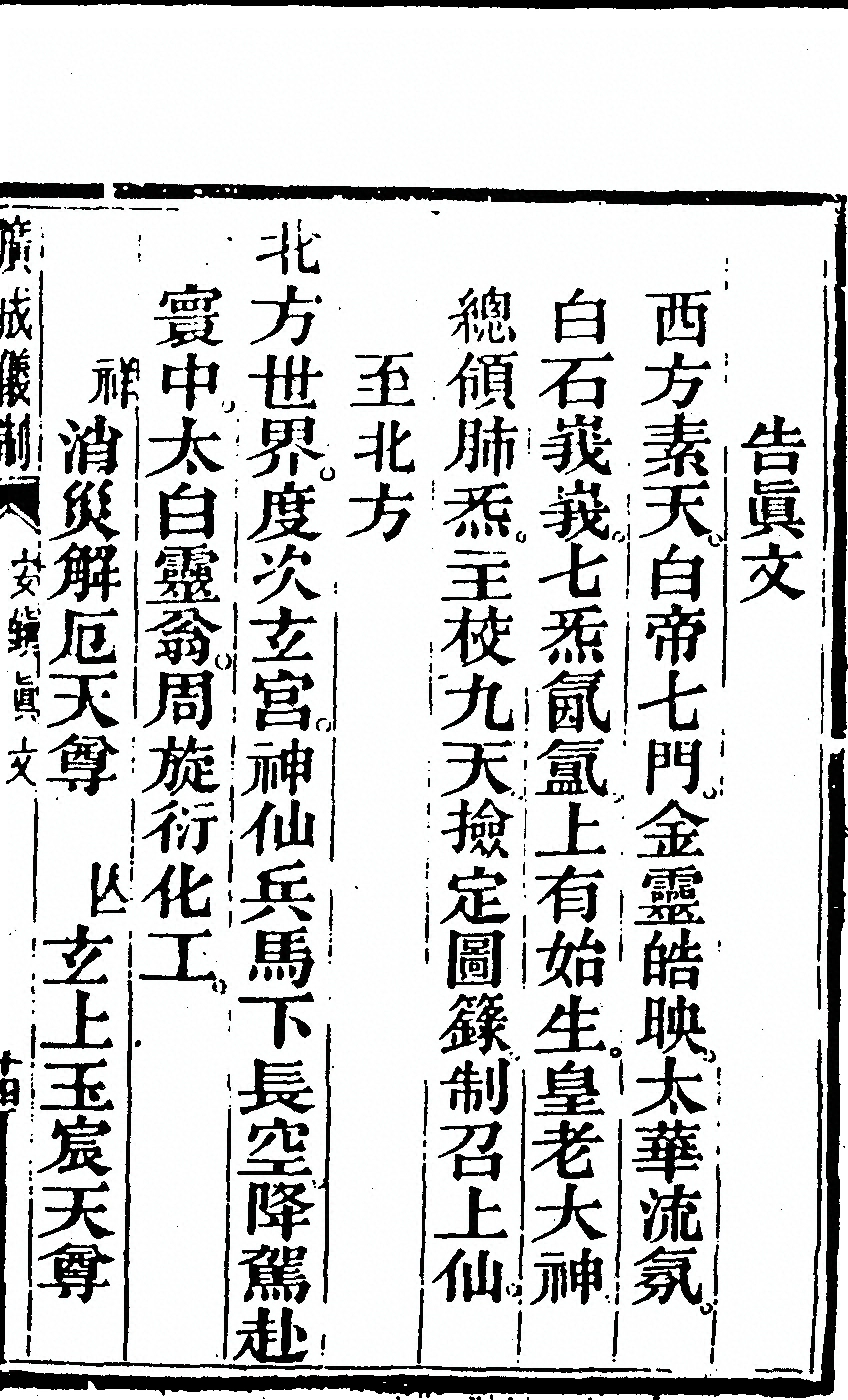 告眞文
西方素天。白帝七門。金靈皓映。太華流氛。
白石峩峩。七炁氤氳。上有始生。皇老大神。
總領肺炁。主校九天。撿定圖籙。制召上仙。
至北方
北方世界。度次玄宮。神仙兵馬下長空。降駕赴
寰中。太白靈翁。周旋衍化工。
祥 消災解厄天尊 亾 玄上玉宸天尊
廣成儀制 安鎮眞文 十四